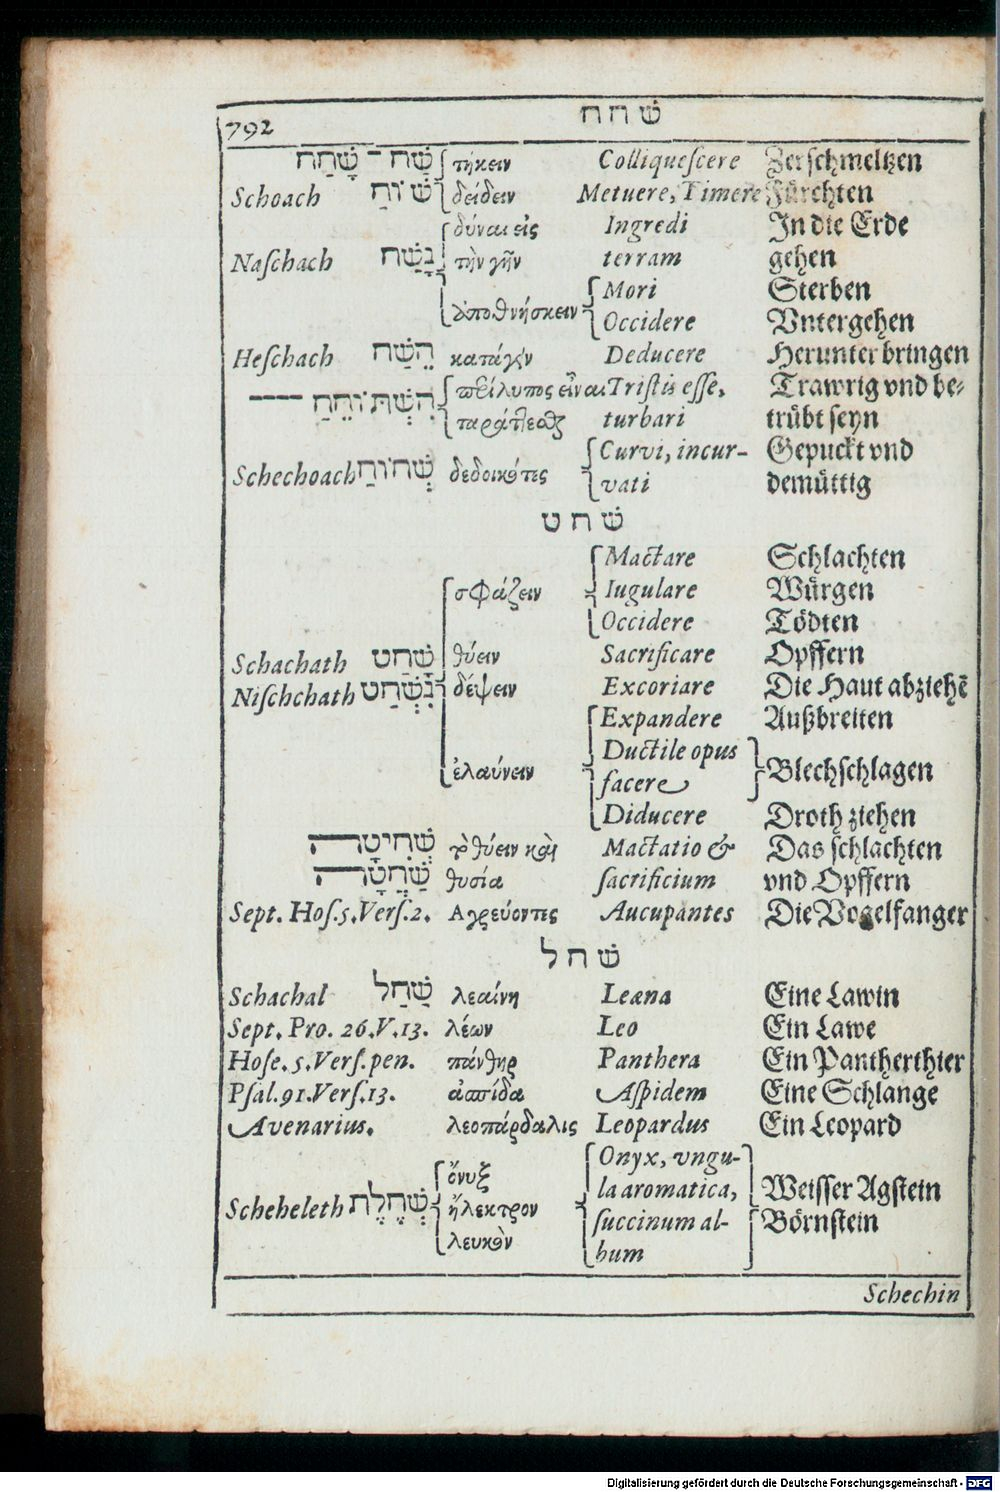 792 שׁחח
שַׁח - שָׁחַח τήκειν Colliquescere Zerschmeltzen
Schoach שׁוֹחַ δείδειν Metuere, Timere Fürchten
δύναι εἰς Ingredi In die Erde
Naſchach נָשַׁח τὴν γῆν terram gehen
Mori Sterben
ἀποθνήσκειν Occidere Vntergehen
Heſchach הֵשַׁח κατάγειν Deducere Herunter bringen
περίλυπος εἶναι Triſtis eſſe, Trawrig vnd be-
---- הִשְׁתּוֹחֵחַ ταράττεσθαι turbari trübt ſeyn
Curvi, incur- Gepuckt vnd
Schechoach שְׁחוֹחַ δεδοικότες vati demüttig
שׁחט
Mactare Schlachten
σφάζειν Iugulare Würgen
Occidere Tödten
Schachath שָׁחַט θύειν Sacrificare Opffern
Niſchchath נִשְׁחַט δέψειν Excoriare Die Haut abziehē
Expandere Außbreiten
Ductile opus
ἐλαύνειν facere Blechſchlagen
Diducere Droth ziehen
שְׁחִיטָה τὸ θύειν καὶ Mactatio & Das ſchlachten
שַׁחֲטָה θυσία ſacrificium vnd Opffern
Sept. Hoſ.5.Verſ.2. Αγρεύοντες Aucupantes Die Vogelfanger
שׁחל
Schachal שַׁחַל λεαίνη Leæna Eine Lawin
Sept. Pro. 26.V.13. λέων Leo Ein Lawe
Hoſe. 5.Verſ.pen. πάνθηρ Panthera Ein Pantherthier
Pſal.91.Verſ.13. ἀσπίδα Aſpidem Eine Schlange
Avenarius. λεοπάρδαλις Leopardus Ein Leopard
Onyx, vngu-
ὄνυξ la aromatica, Weiſſer Agſtein
Scheheleth שְׁחֵלֶת ἤλεκτρον ſuccinum al- Börnſtein
λευκὸν bum
Schechin
Digitalisierung gefördert durch die Deutsche Forschungsgemeinschaft - DFG